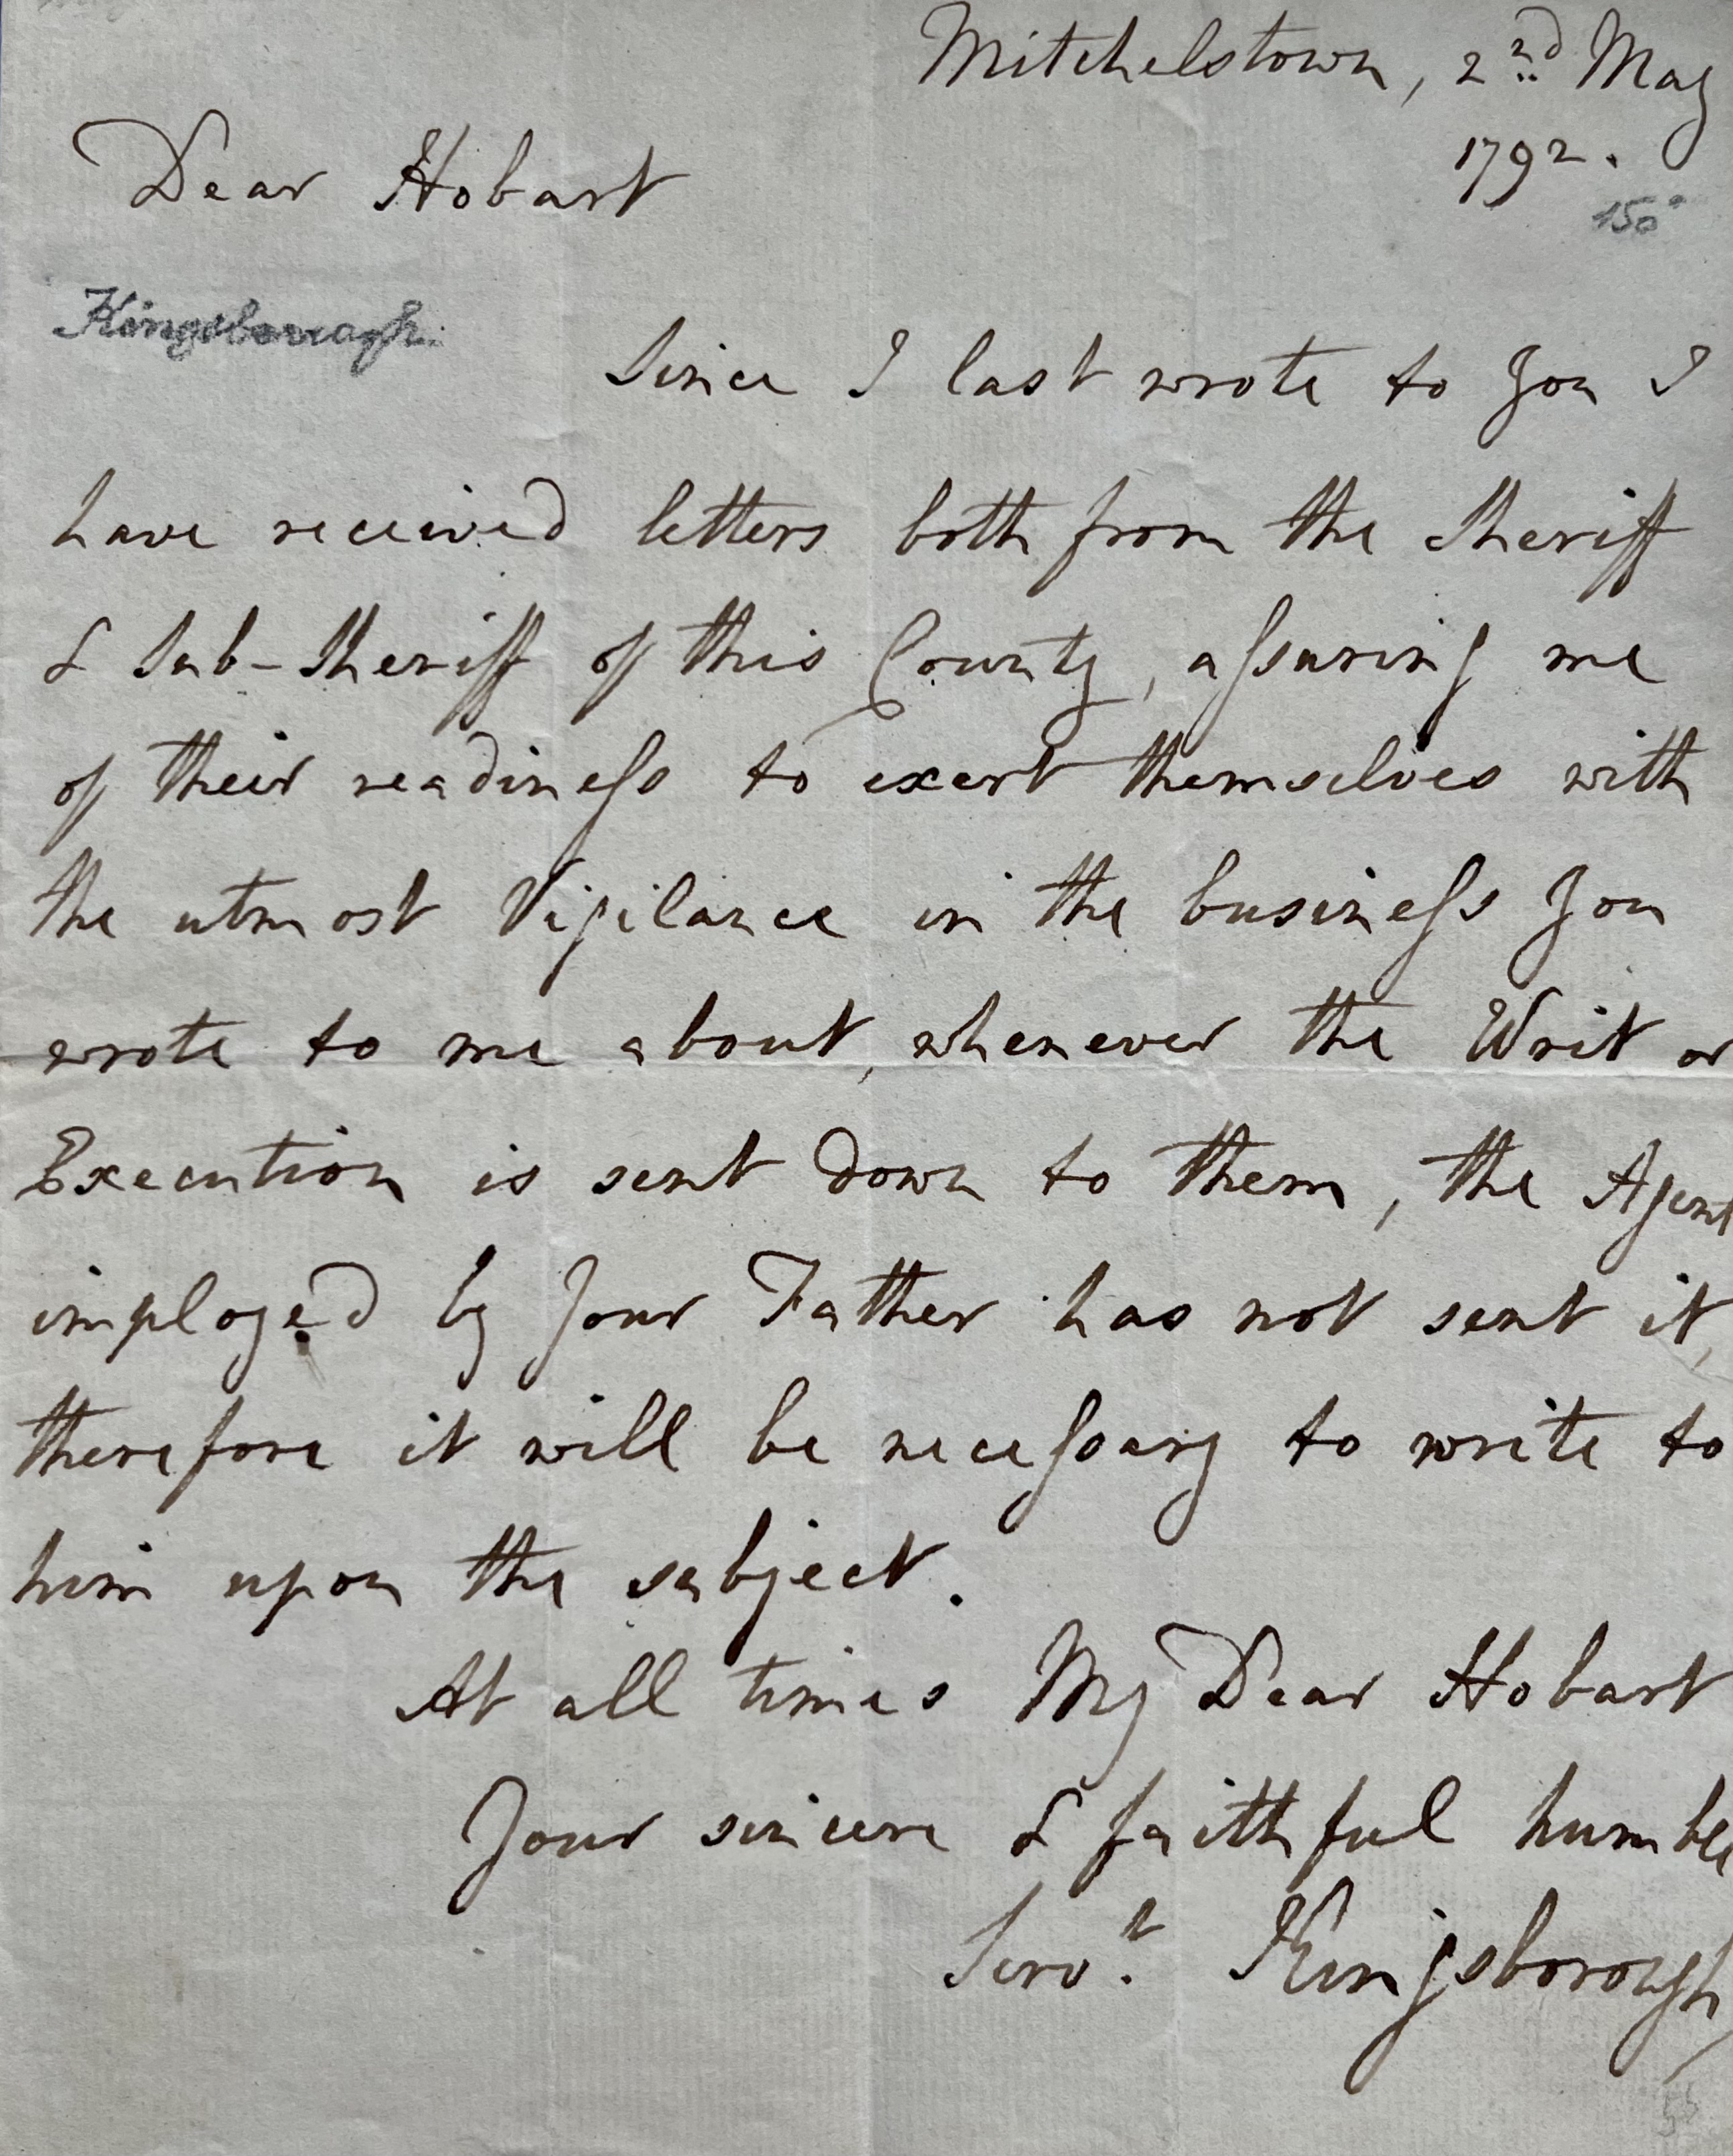 Mitchelstown, 2nd May
1792.
150
Dear Hobart
Kingsborough.
Since I last wrote to you I
have received letters both from the Sheriff
& Sub-Sheriff of this County, aſsuring me
of their readineſs to exert themselves with
the utmost Vigilance in the busineſs you
wrote to me about, whenever the Writ or
Execution is sent down to them, the Agent
imployed by your Father has not sent it,
therefore it will be neceſsary to write to
him upon the subject.
At all times My Dear Hobart
Your sincere & faithful humble
Servt. Kingsborough
55